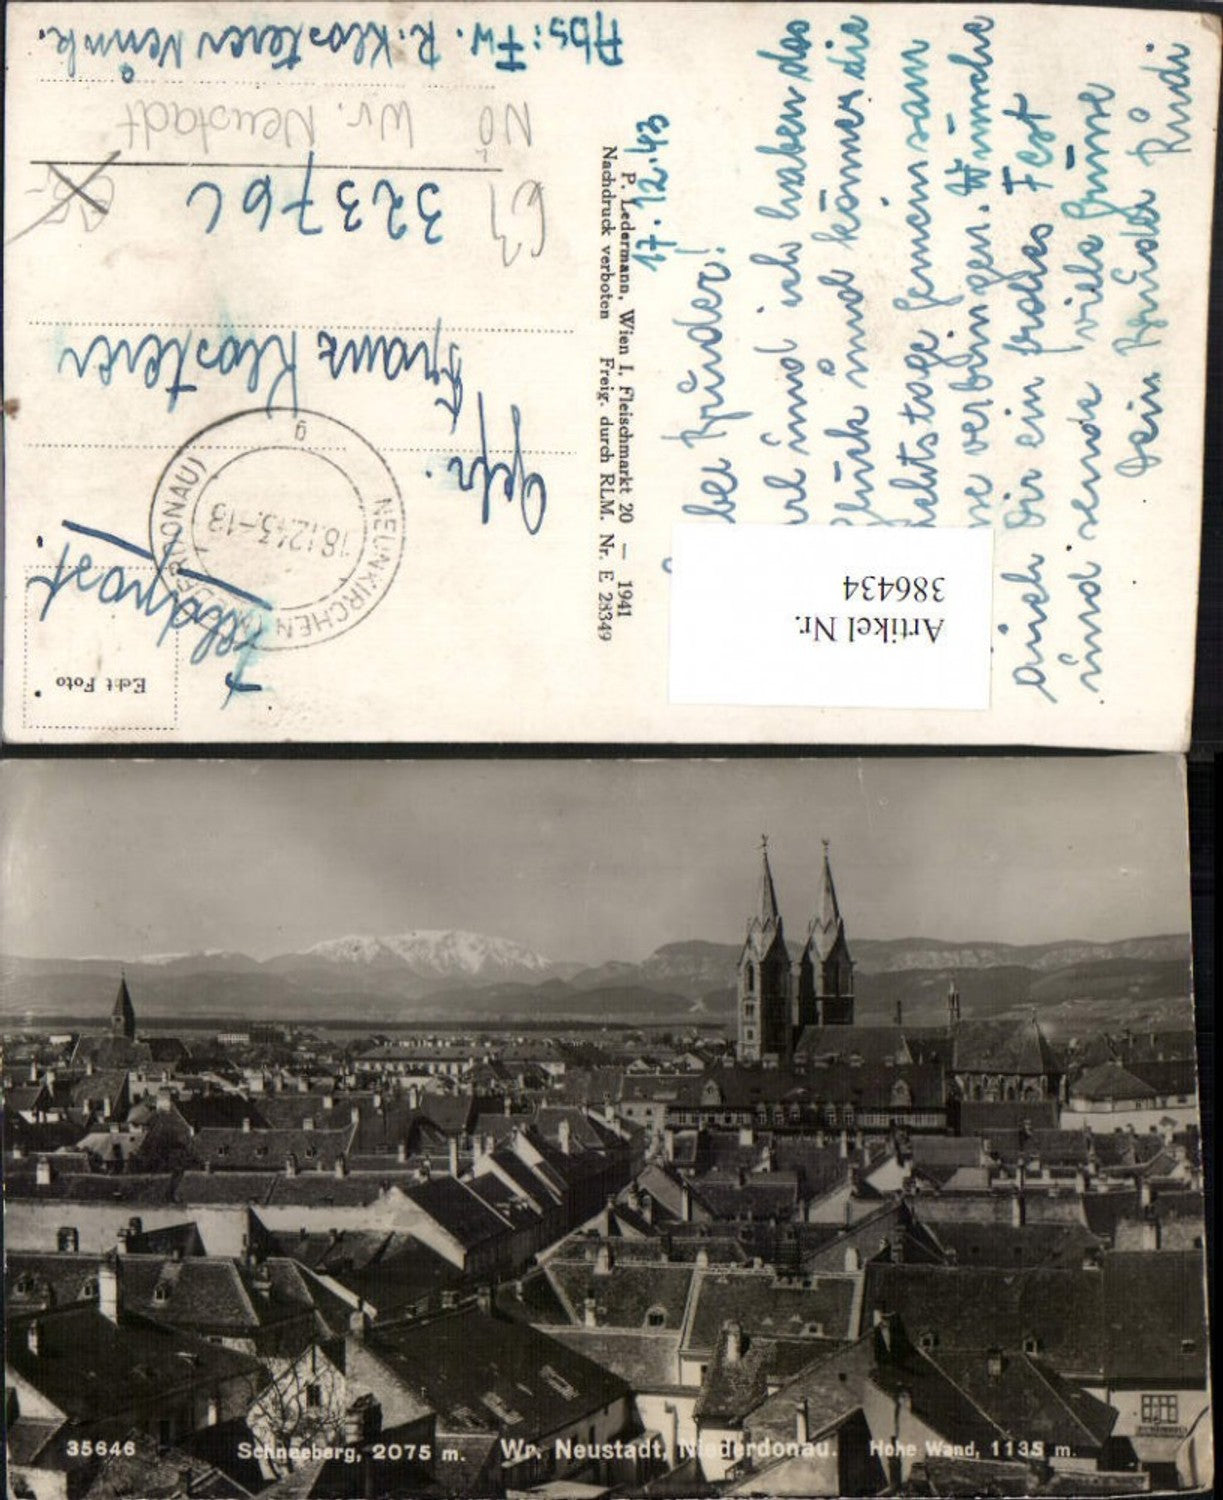 Feldpost.
Echt Foto
NEUNKIRCHEN (NIEDERDONAU)
18.12.43.-18
g
Gefr.
Franz Klosterer
32376 C
Wr. Neustadt
NÖ
Abs: Fw. R. Klosterer Neunk.
P. Ledermann, Wien I, Fleischmarkt 20 — 1941
Nachdruck verboten Freig. durch RLM. Nr. E 23349
17.12.43
ber Brüder!
und ich haben das
Glück und können die
tage gemeinsam
verbringen. Wünsche
auch Dir ein frohes Fest
und sende viele Grüsse
Dein Bruder Rudi
Artikel Nr.
386434
35646 Schneeberg, 2075 m. Wr. Neustadt, Niederdonau. Hohe Wand, 1135 m.